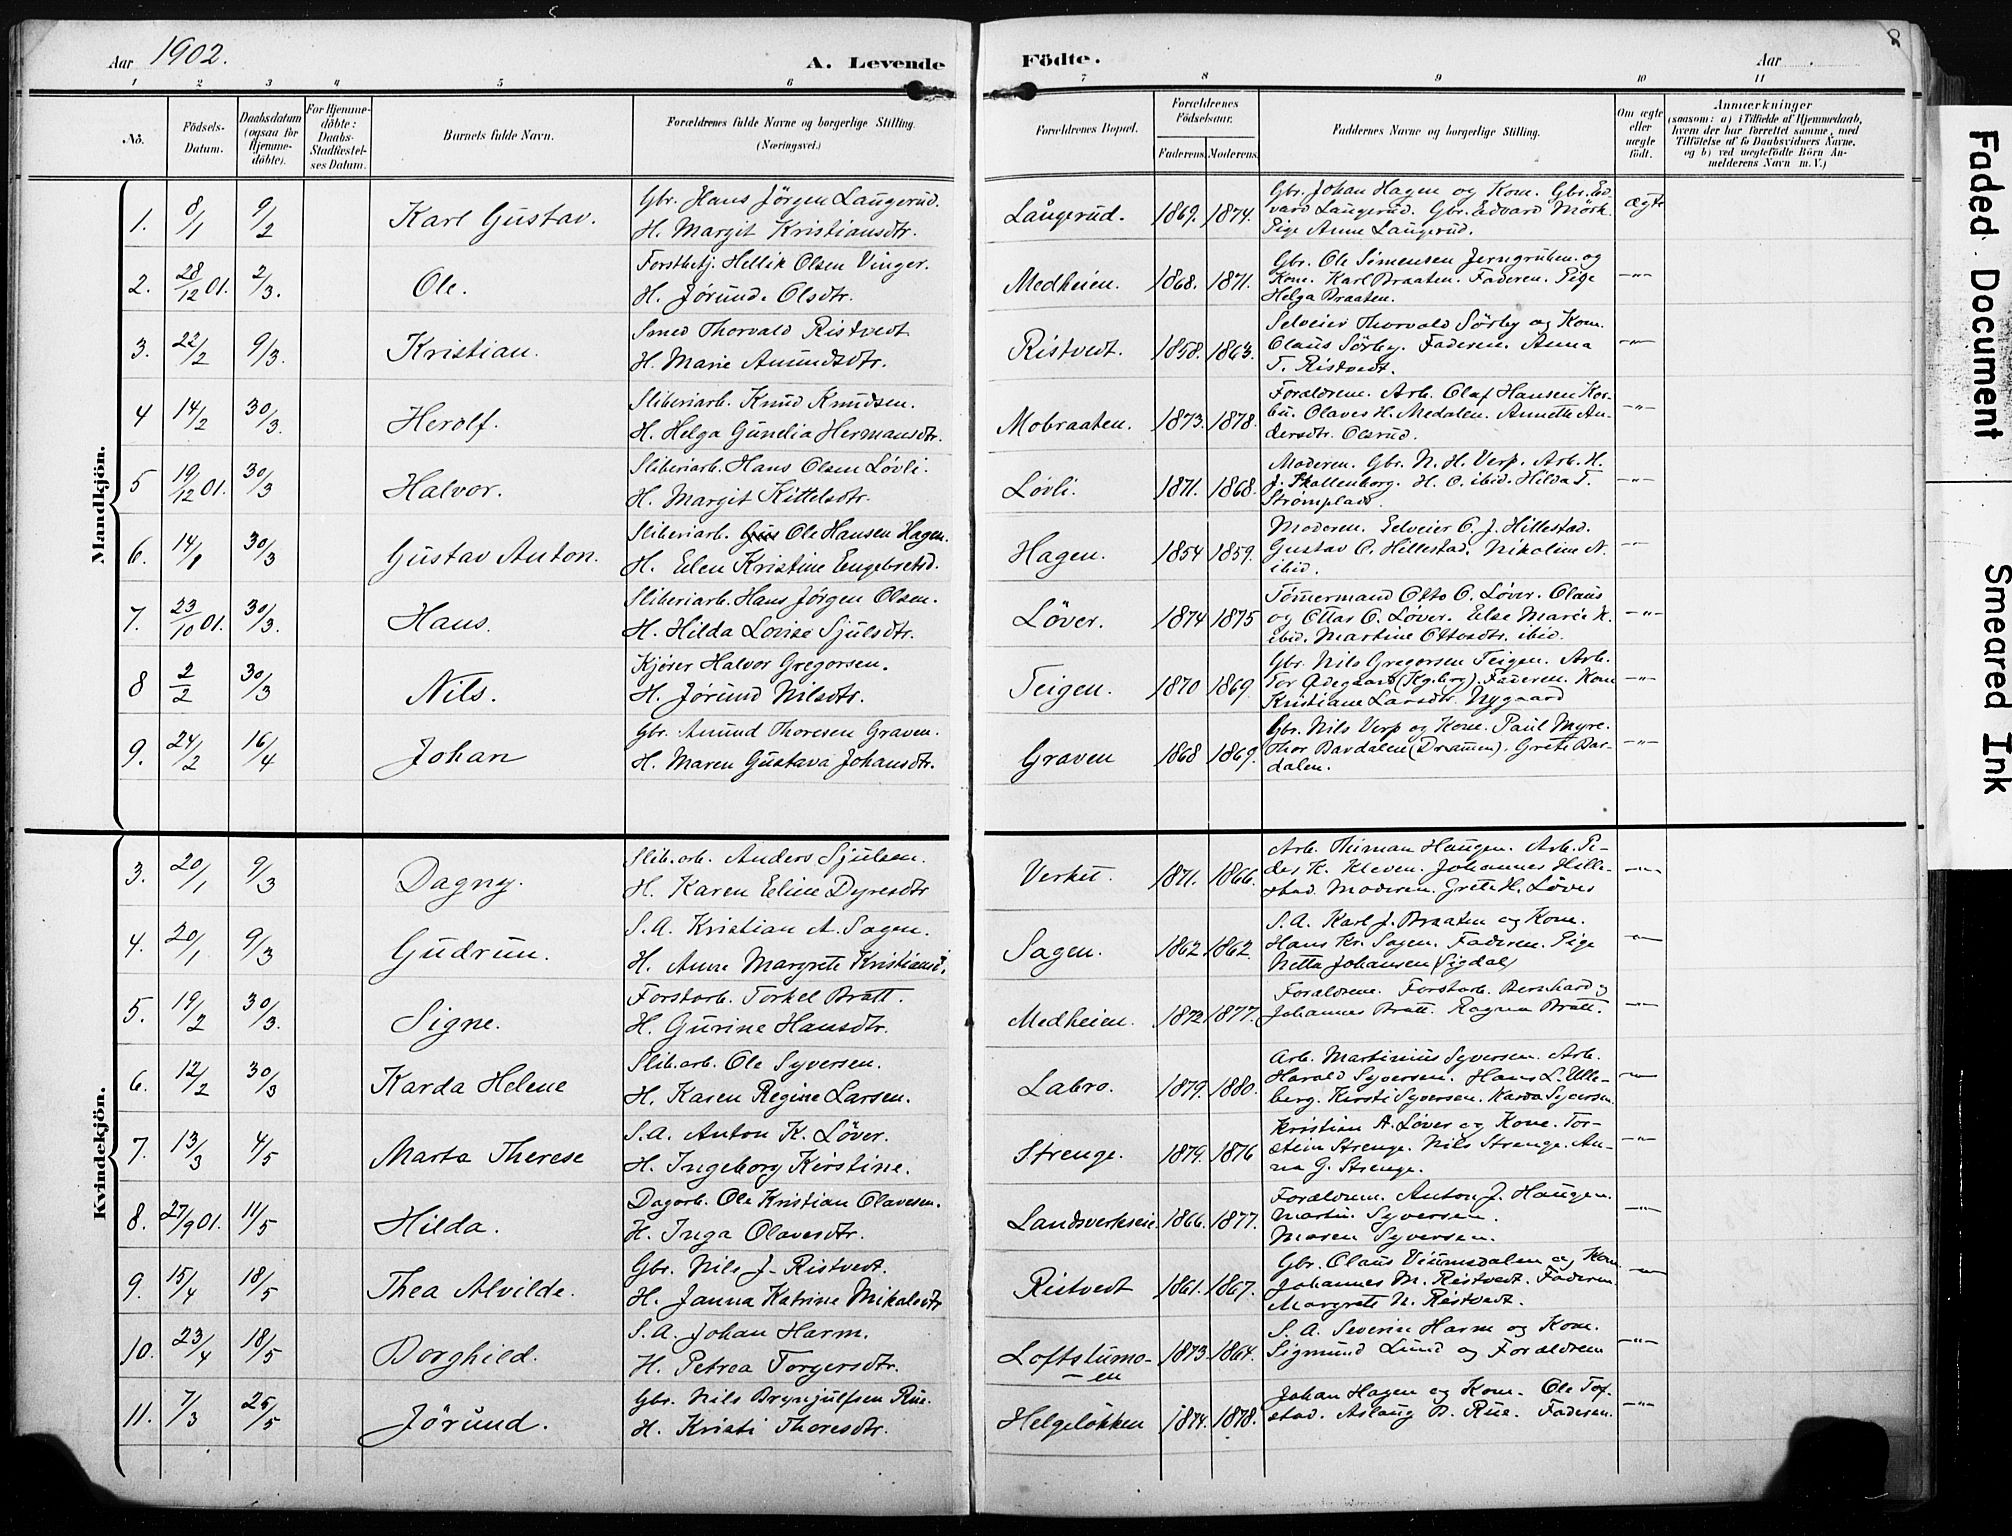 Aar 1902.
A. Levende Födte.
Aar
8
1 2 3 4 5 6 7 8 9 10 11
No.
Födsels-Datum.
Daabsdatum (ogsaa for Hjemme-döbte).
For Hjemme-döbte: Daabs-Stadfæstelses Datum.
Barnets fulde Navn.
Forældrenes fulde Navne og borgerlige Stilling. (Næringsvei.)
Forældrenes Bopæl.
Forældrenes Födselsaar.
Faderens. Moderens.
Faddernes Navne og borgerlige Stilling.
Om ægte eller uægte födt.
Anmærkninger
(saasom: a) i Tilfælde af Hjemmedaab, hvem der har forrettet samme, med Tilföielse af to Daabsvidners Navne, og b) ved uægtefödte Börn Anmelderens Navn m. V.)
Mandkjön.
1. 8/1 9/2 Karl Gustav. Gbr. Hans Jörgen Laugerud.
H. Margit Kristiansdtr.
Laugerud. 1869. 1874.
Gbr. Johan Hagen og Kone. Gbr. Ed-
vard Laugerud. Gbr. Edvard Mörk.
Pige Anne Laugerud.
ægte
2. 28/12 01. 2/3. Ole. Forstbetj. Hellik Olsen Vinger.
H. Jörund. Olsdtr.
Medheien. 1868. 1871.
Gbr. Ole Simensen Jerngruben. og
Kone. Karl Braaten. Faderen. Pige
Helga Braaten.
-"-
3. 22/2 9/3. Kristian. Smed Thorvald Ristvedt
H. Marie Amundsdtr.
Ristvedt. 1858. 1863.
Selveier Thorvald Sörby og Kone.
Olaus Sörby. Faderen. Anna
T. Ristvedt.
-"-
4 14/2 30/3. Herolf. Sliberiarb. Knud Knudsen.
H. Helga Gunelia Hermansdtr.
Mobraaten. 1873. 1878.
Forældrene. Arb. Olaf Hansen
Olaves H. Medalen. Annette An-
dersdtr. Olsrud.
-"-
5 19/12 01. 30/3 Halvor. Sliberiarb. Hans Olsen Lövli.
H. Margit Kittelsdtr.
Lövli. 1871. 1868.
Moderen. Gbr. N. H. Verp. Arb. H.
J. Skallenborg. H. O. ibid. Hilda T.
Strömplads.
-"-
6. 14/1 30/3 Gustav Anton. Sliberiarb. Ole Hansen Hagen.
H. Elen Kristine Engebretsd.
Hagen. 1854 1859.
Moderen. Selveier O. J. Hillestad.
Gustav O. Hillestad. Nikoline N.
ibid.
-"-
7. 23/10 01. 30/3. Hans. Sliberiarb. Hans Jörgen Olsen.
H. Hilda Lovise Sjulsdtr.
Löver. 1874 1875
Tömmermand Otto O. Löver. Olaus
og Ottar O. Löver. Else Marie K.
ibid. Martine Ottosdtr. ibid.
-"-
8 2/2 30/3 Nils. Kjörer Halvor Gregorsen.
H. Jörund Nilsdtr.
Teigen. 1870 1869
Gbr. Nils Gregorsen Teigen. Arb.
Tor Ödegaard (Kgsberg). Faderen. Kone
Kristiane Larsdtr. Nygaard
-"-
9. 24/2 16/4 Johan Gbr. Amund Thoresen Graven.
H. Maren Gustava Johansdtr.
Graven 1868 1869.
Gbr. Nils Verp og Kone. Paul Myre.
Thor Bavdalen (Drammen). Grete Bav-
dalen.
-"-
Kvindekjön.
3. 20/1 9/3 Dagny. Slib.arb. Anders Sjulsen.
H. Karen Eline Dyresdtr
Verket. 1871. 1866.
Arb. Thiman Haugen. Arb. Pe-
der K. Kleven. Johannes Hille-
stad. Moderen. Grete H. Löver
-"-
4. 20/1 9/3 Gudrun. S.A. Kristian A. Sagen.
H. Anne Margrete
Sagen. 1862. 1862.
S.A. Karl J. Braaten og Kone.
Hans Kr. Sagen. Faderen. Pige
Netta Johansen (Sigdal)
-"-
5. 19/2 30/3. Signe. Forstarb. Torkel Bratt.
H. Gurine Hansdtr.
Medheien. 1872 1877.
Forældrene. Forstarb. Bernhard og
Johannes Bratt. Ragna Bratt.
-"-
6. 12/2 30/3 Karda Helene Slib.arb. Ole Syversen.
H. Karen Regine Larsen.
Labro. 1879. 1880.
Arb. Martinius Syversen. Arb.
Harald Syversen. Hans L. Ulle-
berg. Kirsti Syversen. Karda Syversen.
-"-
7. 13/3 4/5 Marta Therese S.A. Anton K. Löver.
H. Ingeborg Kirstine.
Strenge. 1879. 1876
Kristian A. Löver og Kone. Tor-
stein Strenge. Nils Strenge. An-
na G. Strenge.
-"-
8. 27/9 01. 11/5 Hilda. Dagarb. Ole Kristian Olavesen.
H. Inga Olavesdtr.
Landsverkseie. 1866. 1877.
Forældrene. Anton J. Haugen.
Martin Syversen.
Maren Syversen.
-"-
9. 15/4 18/5 Thea Alvilde. Gbr. Nils J. Ristvedt.
H. Janna Katrine Mikalsdtr
Ristvedt 1861. 1867.
Gbr. Olaus Vimmsdalen og Kone
Johannes M. Ristvedt. Faderen.
Margrete N. Ristvedt.
-"-
10. 23/4 18/5 Borghild. S.A. Johan Harm.
H. Petrea Torgersdtr.
Loftstumo-
en
1873. 1864.
S.A. Severin Harm og Kone.
Sigmund Lund og Forældrene
-"-
11. 7/3 25/5 Jörund. Gbr. Nils Brynjulfsen Rue.
H. Kristi Thoresdtr.
Helgelökken 1874. 1878.
Johan Hagen og Kone. Ole Tof-
stad. Aslaug B. Rue. Faderen.
-"-
Faded Document
Smeared Ink